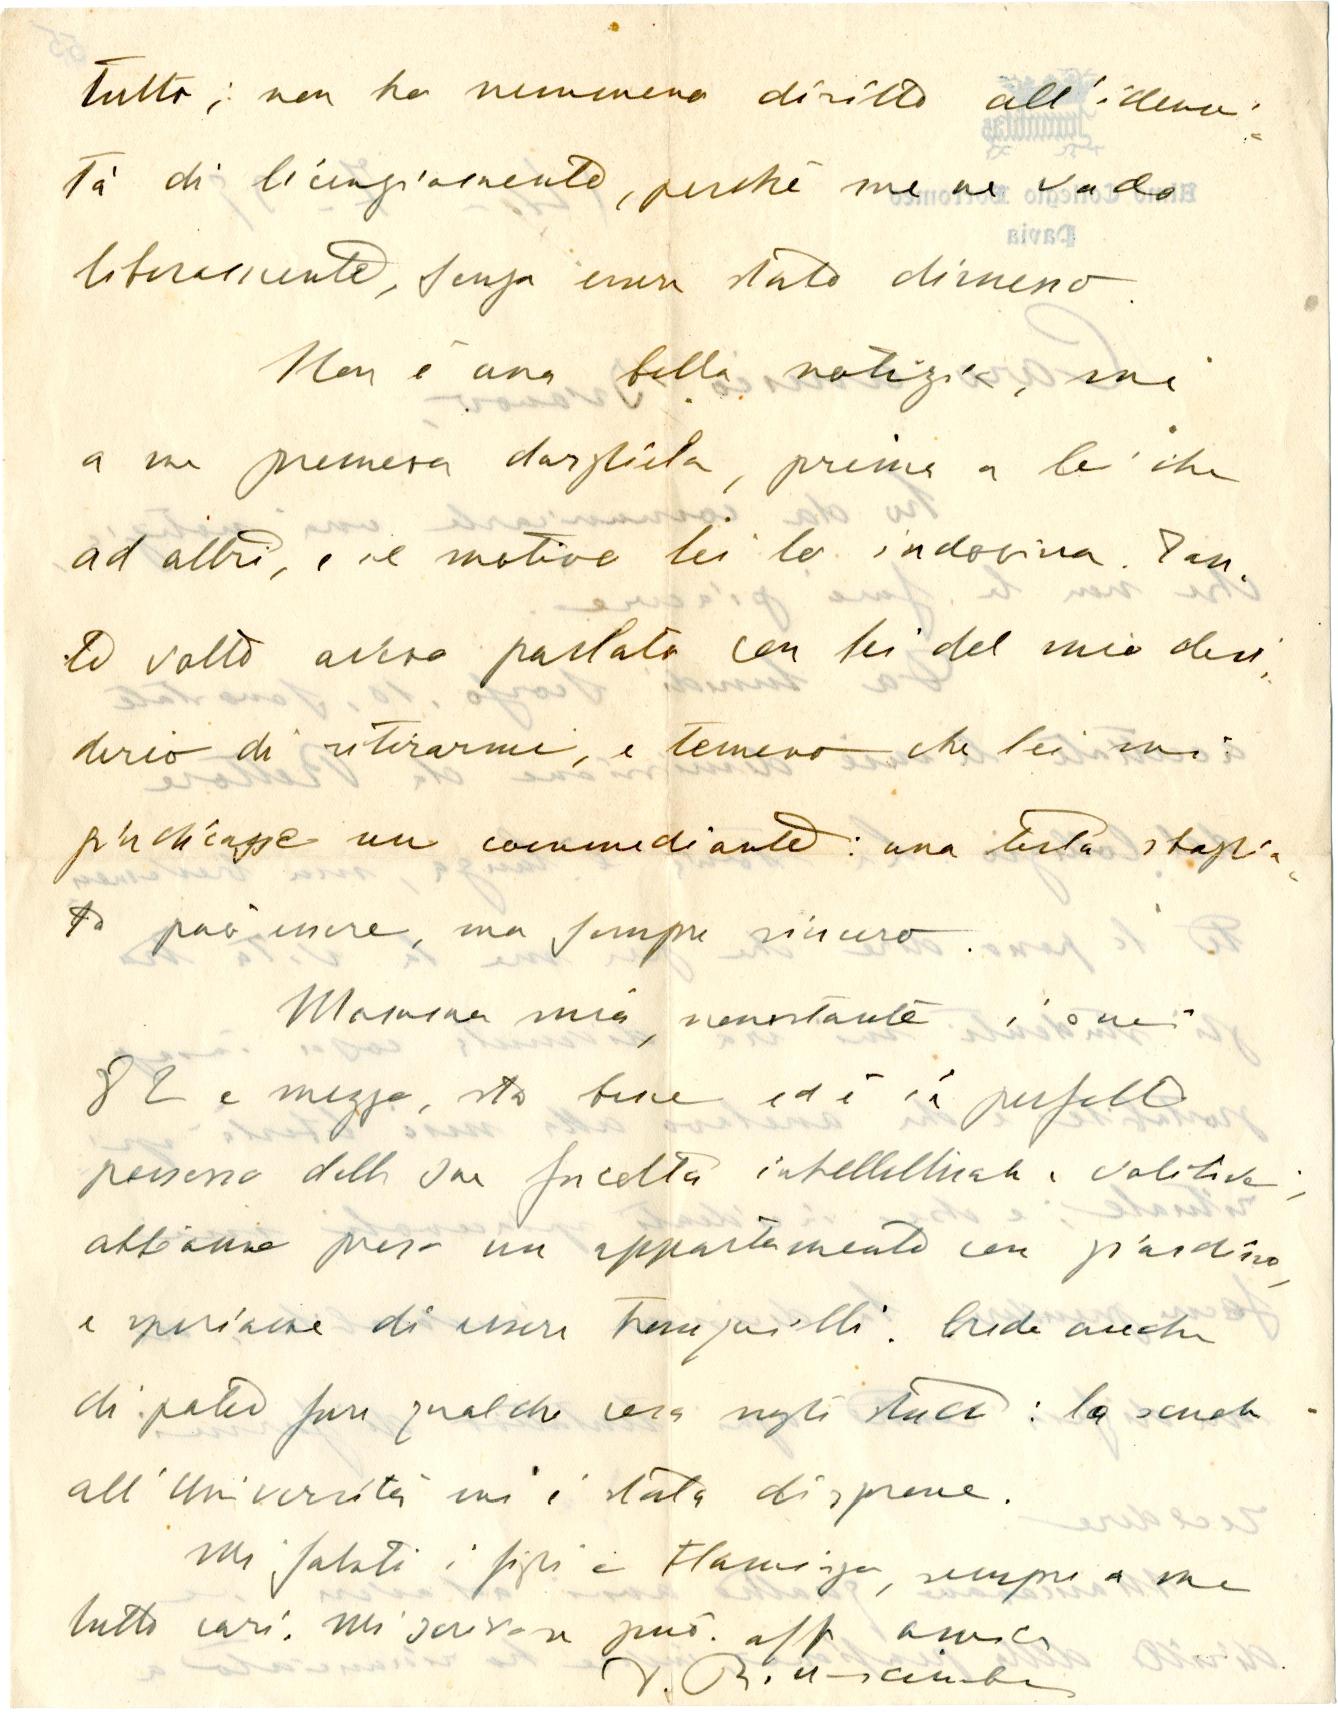 tutto; non ha nemmeno diritto all'idenni-
tà di licenziamento, perché me ne vado
liberamente, senza essere stato dimesso.
Non è una bella notizia, ma
a me premeva dargliela, prima a lei che
ad altri, e il motivo lei lo indovina. Tan-
te volte avevo parlato con lei del mio desi-
derio di ritirarmi, e temevo che lei mi
giudicasse un commediante: una testa stagia-
ta può essere, ma sempre sincero.
Mamma mia, nonostante i suoi
82 e mezzo, sta bene ed è in perfetto
possesso delle sue facoltà intellettuali e volitive;
abbiamo preso un appartamento con giardino,
e speriamo di essere tranquilli. Credo anche
di poter fare qualche cosa negli studi: la scuola
all'Università mi è stata di
Mi saluti i figli e Flaminja, sempre a me
tutti cari. Mi scriva se può. aff. amico